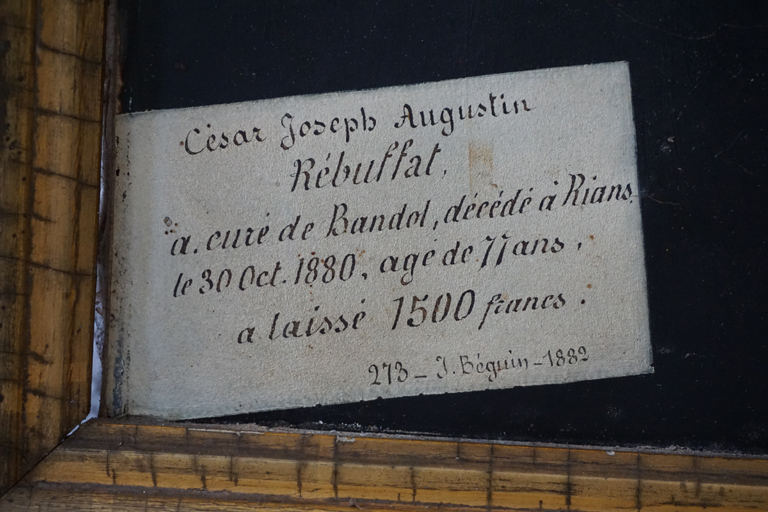 César Joseph Augustin
Rébuffat,
a. curé de Bandol, décédé à Rians
le 30 Oct. 1880, agé de 77 ans,
a laissé 1500 francs.
273 - J. Béguin - 1882